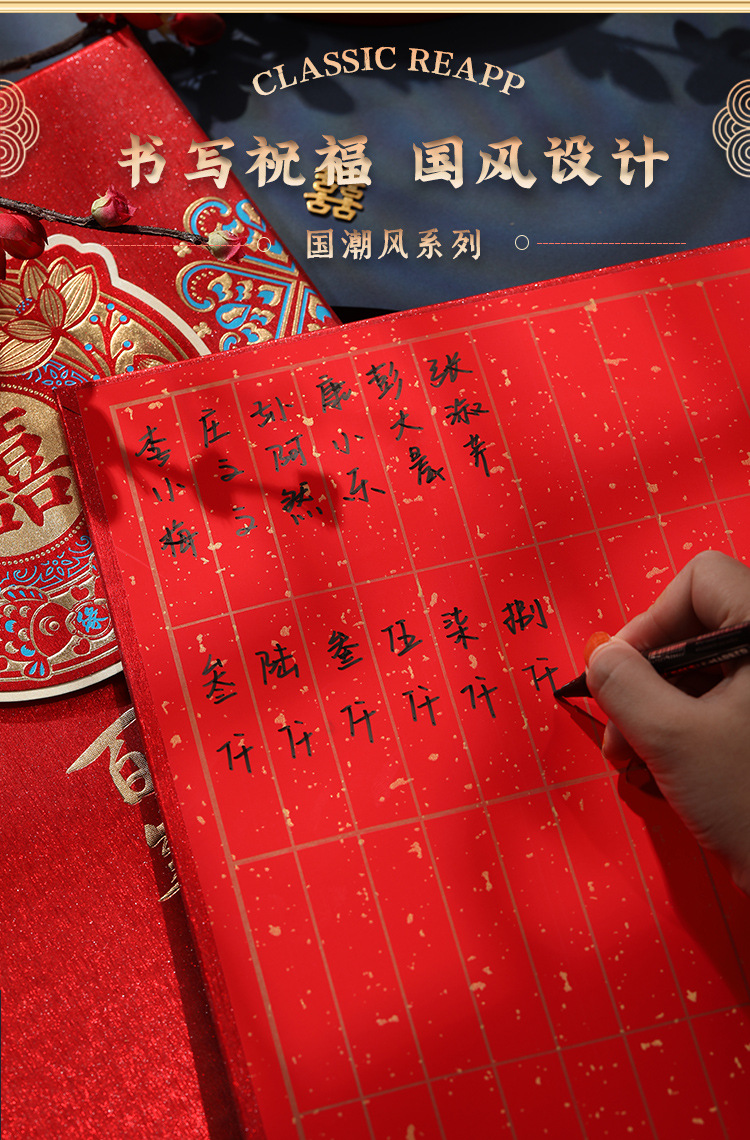 CLASSIC REAPP
书写祝福 国风设计
囍
国潮风系列
囍
百
李小梅
庄文文
孙阿然
康小乐
彭大
张淑芹
叁仟
陆仟
叁仟
伍仟
柒仟
捌仟